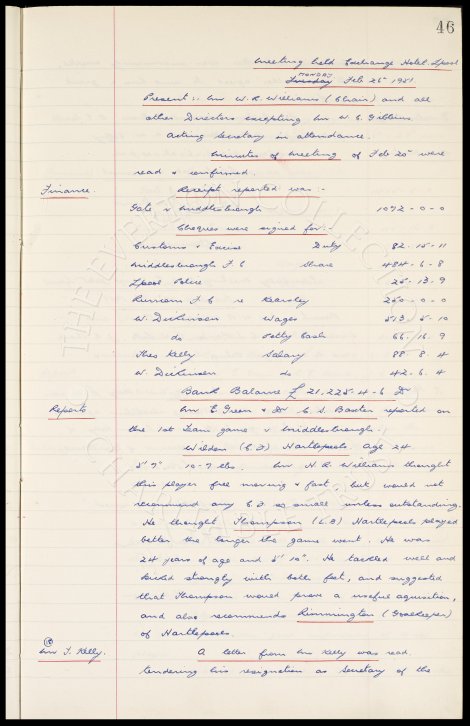 46
Meeting held Exchange Hotel. Lpool
MONDAY
Tuesday Feb 26th 1951.
Present :- Mr W. R. Williams (Chair) and all
other Directors excepting Mr W. C. Gibbins.
Acting Secretary in attendance.
Minutes of meeting of Feb 20th were
read & confirmed.
Finance. Receipt reported was :-
Gate v Middlesbrough 1092 - 0 - 0
Cheques were signed for :-
Customs & Excise Duty 82 - 15 - 11
Middlesbrough F C Share 484 - 6 - 8
Lpool Police 25 - 13 - 9
Runcorn F. C re Kearsley 250 - 0 - 0
W. Dickinson Wages 513 - 5 - 10
do Petty Cash 66 - 16 - 9
Theo Kelly Salary 88 - 8 - 4
W. Dickinson do 42 - 6 - 4
Bank Balance £ 21,225 - 4 - 6 Dr
Reports Mr E Green & Dr C. S. Baxter reported on
the 1st Team game v Middlesbrough.
Wildon (C F) Hartlepools age 24
5'9" 10-7 lbs. Mr H. R. Williams thought
this player free moving & fast, but would not
recommend any C F as small unless outstanding.
He thought Thompson (L.B) Hartlepools played
better the longer the game went. He was
24 years of age and 5' 10". He tackled well and
kicked strongly with both feet, and suggested
that Thompson would prove a useful acquisition,
and also recommends Rimmington (Goalkeeper)
of Hartlepools.
Mr T. Kelly. A letter from Mr Kelly was read,
tendering his resignation as Secretary of the
THE EVERTON COLLECTION